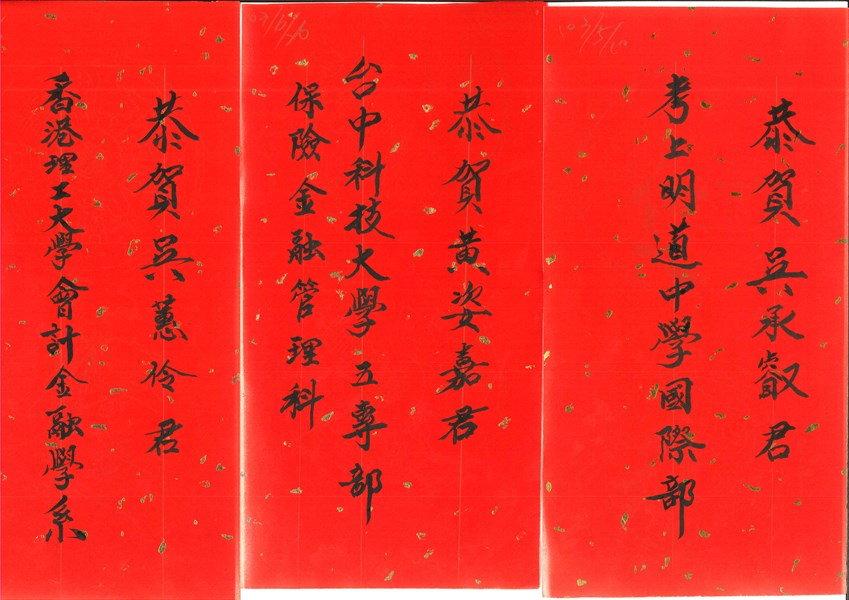 恭賀吳承叡君
考上明道中學國際部
103/5/6
恭賀黃姿嘉君
台中科技大學五專部
保險金融管理科
恭賀吳蕙伶君
香港理工大學會計金融學系